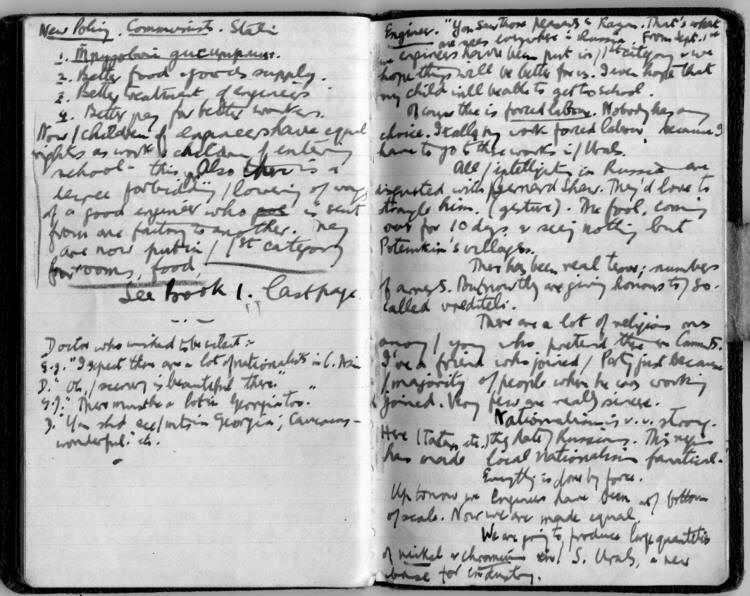 New Policy. Communists. Stalin
1. Трудовая дисциплина.
2. Better food & goods supply.
3. Better treatment of engineers
4. Better pay for better workers.
Now / children of engineers have equal
rights as work children of entering
school - this. Also there is a
decree forbidding / lowering of wages
of a good engineer who is sent
from one factory to another. They
are now put in / 1st category
for rooms, food,
See Book 1. Last page
Doctor who wished to be silent :-
G.J. "I expect there are a lot of nationalists in C. Asia
D. "Oh, / scenery is beautiful there."
G.J. "There must be a lot in Georgia too.
D. You shd see / mts in Georgia; Caucasus -
wonderful." etc.
Engineer. "You saw those peasants Kazan. That's what
are seen everywhere in Russia. From Sept. 1st
engineers have been put in / 1st category & we
hope things will be better for us. I even hope that
my child will be able to get to school.
Of course there is forced labour. Nobody has any
choice. I call my work forced labour because I
have to go to the works in / Urals.
All / intelligentsia in Russia are
disgusted with Bernard Shaw. They'd love to
strangle him. (gesture). The fool, coming
over for 10 days, & seeing nothing but
Potemkin's villages.
There has been real terror; numbers
of arrests. But now they are giving honours to / so-
called vrediteli.
There are a lot of religious ones
among / young who pretend they're Commts.
I've a friend who joined / Party just because
/ majority of people where he was working
joined. Very few are really sincere.
Nationalism is v. v. strong.
Here (Tatars, etc.) they hate / Russians. This regime
has made local nationalism fanatical.
Everything is done by force.
Up to now we Engineers have been at / bottom
of scale. Now we are made equal.
We are going to produce large quantities
of nickel & chromium in / S. Urals, a new
base for industry.